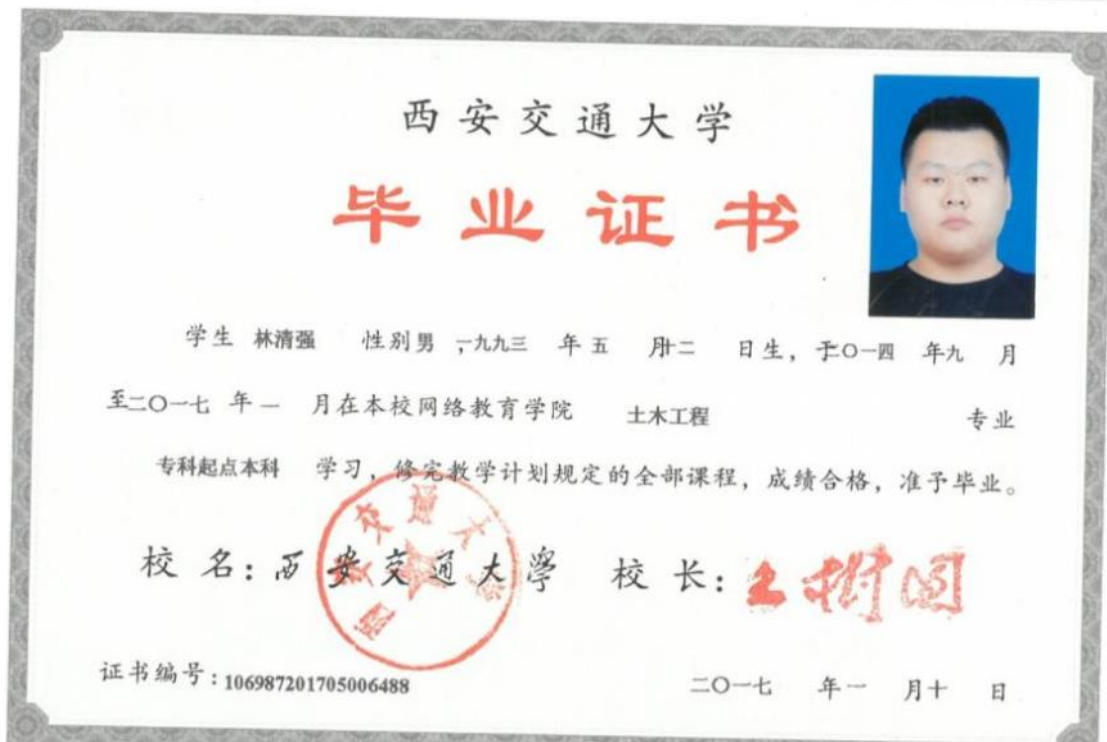 西安交通大学
毕业证书
学生 林清强 性别 男 ,一九九三 年 五 月廿二 日生，于二〇一四 年 九 月
至二〇一七 年 一 月在本校网络教育学院 土木工程 专业
专科起点本科 学习，修完教学计划规定的全部课程，成绩合格，准予毕业。
校 名：西安交通大學 校 长：王树国
西安交通大学
证书编号：106987201705006488 二〇一七 年 一 月 十 日